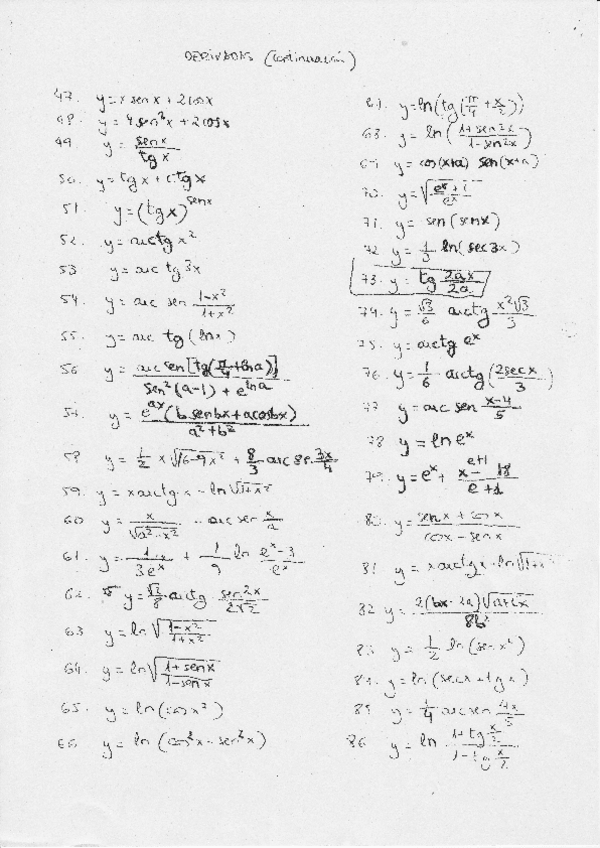 DERIVADAS (continuación)
47. y = x senx + 2cosx
48. y = 4 sen²x + 2cosx
49. y = senx / tgx
50. y = tgx + ctgx
51. y = (tgx)^senx
52. y = arctg x²
53 y = arc tg 3x
54. y = arc sen (1-x²)/(1+x²)
55. y = arc tg (lnx)
56 y = arc sen[tg(π/4 + lna)] / sen²(a-1) + e^lna
57. y = e^ax (b senbx + a cosbx) / a²+b²
58 y = 1/2 x√16-9x² + 8/3 arc sen 3x/4
59. y = x arctg x - ln√1+x²
60 y = x/√a²-x² - arc sen x/a
61. y = 1·x/3e^x + 1/9 ln (e^x-3)/e^x
62. y = √2/8 arctg sen2x/2√2
63 y = ln√(1-x²)/(1+x²)
64. y = ln√(1+senx)/(1-senx)
65. y = ln(cosx²)
66 y = ln (cos²x - sen²x)
y = ln(tg(π/4 + x/2))
68. y = ln((1+sen2x)/(1-sen2x))
69. y = cos(x+a) sen(x+a)
70. y = √(e^x+1)/e^x
71. y = sen (senx)
72 y = 1/3 ln(sec3x)
73. y = tg 2ax/2a
74. y = √3/6 arctg x²√3/3
75. y = arctg e^x
76. y = 1/6 arctg(2secx/3)
77 y = arc sen (x-4)/5
78 y = ln e^x
79. y = e^x + x^e+1 18/e+1
80. y = (senx + cosx)/(cosx - senx)
81 y = x arctgx - ln√1+x
82 y = 2(bx-2a)√a+bx / 8b²
83. y = 1/2 ln(senx²)
84. y = ln(secx + tgx)
85. y = 1/4 arcsen 4x/5
86. y = ln (1+tg x/2)/(1-tg x/2)